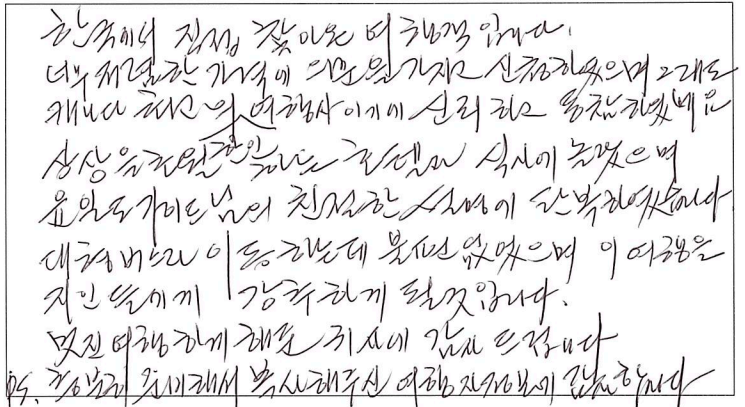 한국에서 직접 찾아온 여행객 입니다.
너무 저렴한 가격에 의문을 가지고 신청하였으며 그래도
캐나다 최고의 여행사이기에 신뢰하고 동참하였는데
상상을 초월 한인 호텔과 식사에 놀랐으며
윤일도 가이드님의 친절한 설명에 탄복하였습니다
대형버스라 이동하는데 불편 없었으며 이 여행을
지인들에게 강추하게 될것입니다.
멋진 여행하게 해준 귀사에 감사 드립니다
PS. 해서 복사해주신 여행 감사합니다